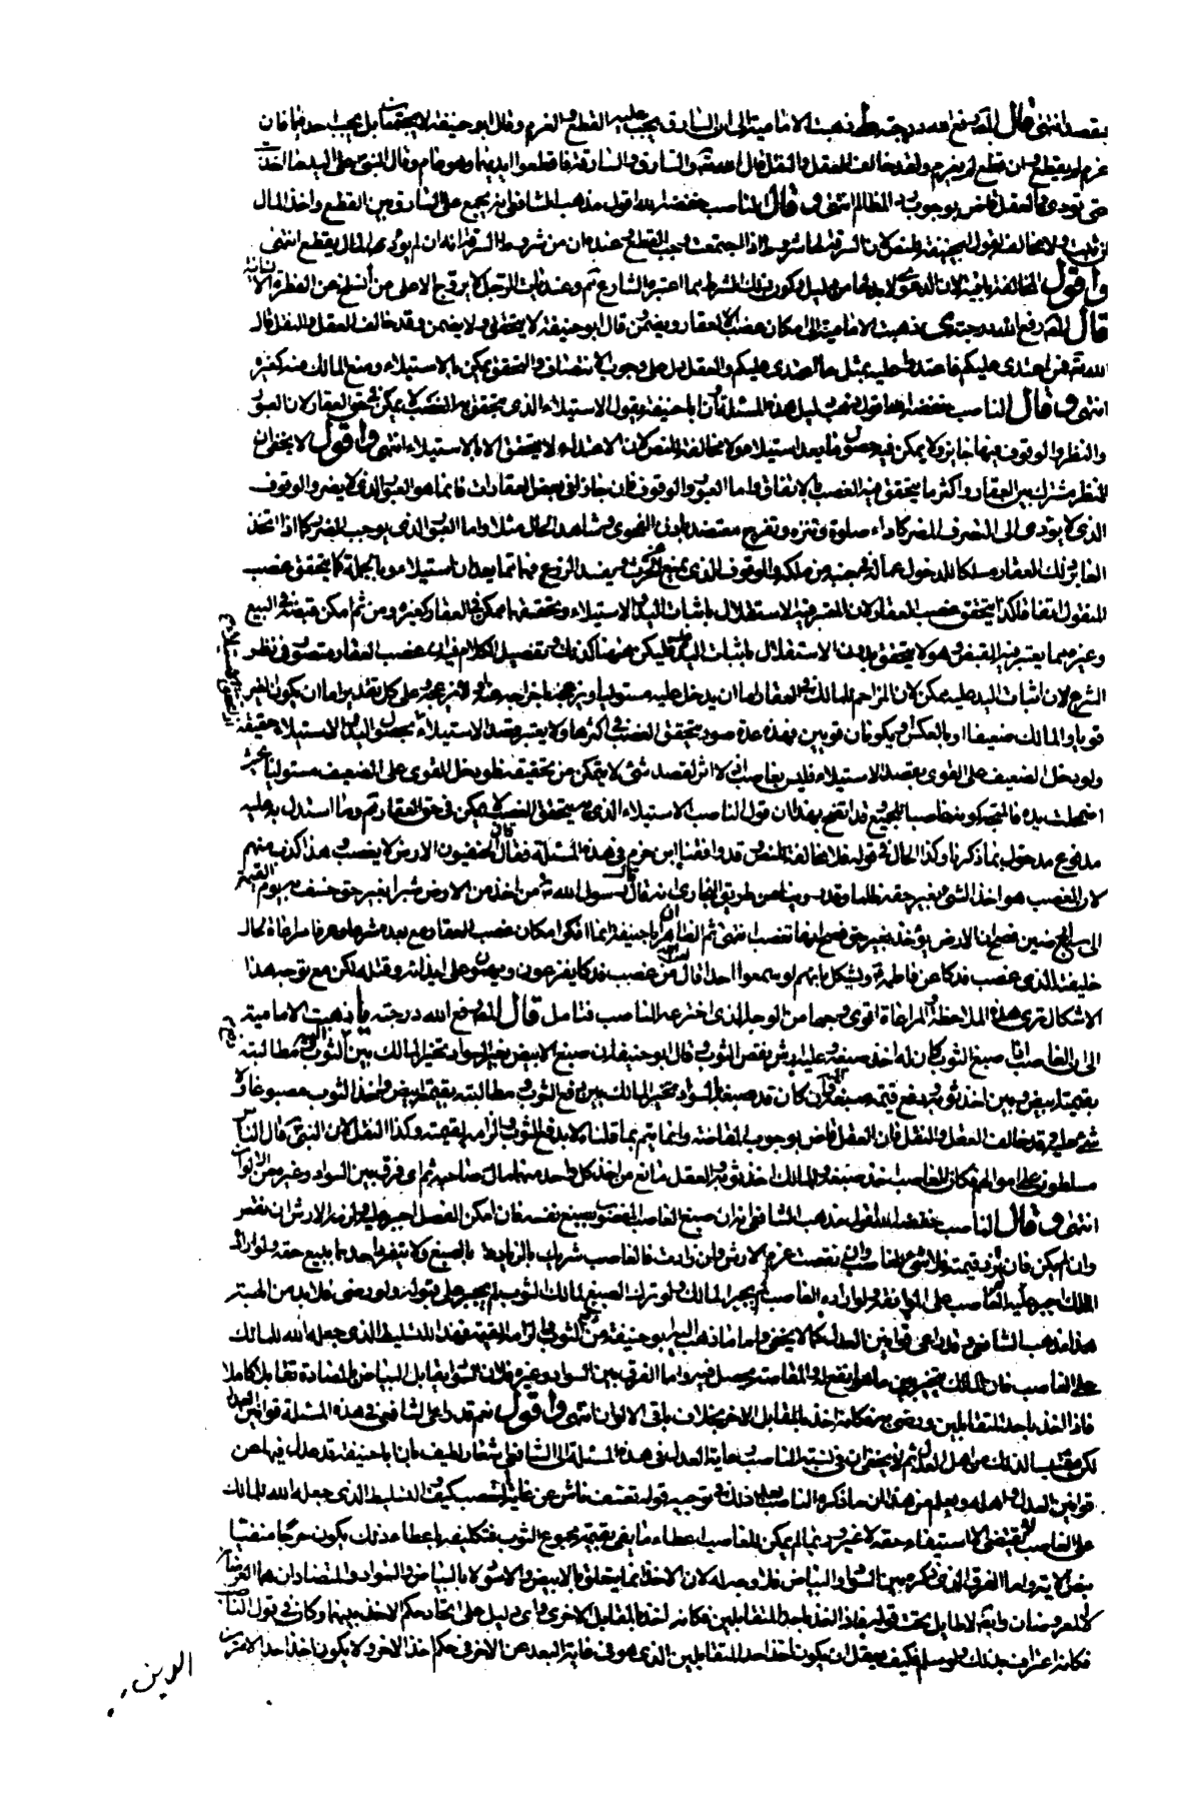 بقصد انتهى قال المصنف رفع الله درجته ط ذهبت الامامية الى ان السارق يجب عليه القطع والغرم وقال ابو حنيفة لا يجتمعان بل يجب احدهما فان
غرم لم يقطع وان قطع لم يغرم ولقد خالف العقل والنقل قال الله تعالى والسارق والسارقة فاقطعوا ايديهما وهو عام وقال النبي على اليد ما اخذت
حتى تؤدى والعقل قاض بوجوب رد المظالم انتهى وقال الناصب خفضه الله اقول مذهب الشافعي انه يجمع على السارق بين القطع واخذ المال
ان تلف ولا مخالفة لقول ابي حنيفة للنص لان السرقة لها شروط اذا اجتمعت وجب القطع وعنده ان من شروط السرقة انه ان لم يؤدى المال يقطع انتهى
واقول المخالفة باقية لان الدعوى لا بد لها من دليل وكون ذلك الشرط مما اعتبره الشارع ثم وعند ذلك الرجل لا يروج الا على من انسلخ عن الفطرة الانسانية
قال المصنف رفع الله درجته ى ذهبت الامامية الى امكان غصب العقار ويضمن قال ابو حنيفة لا يتحقق ولا يضمن وقد خالف العقل والنقل قال
الله تعالى فمن اعتدى عليكم فاعتدوا عليه بمثل ما اعتدى عليكم والعقل دل على وجوب الانتصاف والتحقق ممكن بالاستيلاء ومنع المالك منه كغيره
انتهى وقال الناصب خفضه الله اقول ذهب دليل هذه المسئلة ان ابا حنيفة يقول الاستيلاء الذى يتحقق به الغصب لا يمكن في حق العقار لان العبور
والنظر والوقوف فيها جائز ولا يمكن فيه حصول ما يعد استيلاء ولا مخالفة للنص لان الاعتداء لا يتحقق الا بالاستيلاء انتهى واقول لا يخفى ان
النظر مشترك بين العقار واكثر ما يتحقق فيه الغصب بالاتفاق واما العبور والوقوف فان جاز في بعض العقارات فانما هو العبور الذى لا يضر والوقوف
الذى لا يؤدى الى التصرف المضر كاداء صلوة وتنزه وتفرج مقتضى اذن الفحوى وشاهد الحال مثلا واما العبور الذى يوجب الضرر كما اذا اتخذ
العابر ذلك العقار مسلكا للدخول عماله في جنبه من ملكه والوقوف الذى يمنع الحرث ويفسد الزرع فهما مما يعدان استيلاء وبالجملة كما يتحقق غصب
المنقول اتفاقا فكذا يتحقق غصب العقار لان المعتبر فيه الاستقلال باثبات اليد والاستيلاء وتحققهما ممكن في العقار كغيره ومن ثم امكن قبضه في البيع
وغيره مما يعتبر فيه القبض وهو لا يتحقق بدون الاستقلال باثبات اليد فليكن ههنا كذلك وتفصيل الكلام فيه ان غصب العقار متصور في نظر
الشرع لان اثبات اليد عليه ممكن لان المزاحم للمالك في العقار اما ان يدخل عليه مستوليا ويزعجه باخراجه عنه او لا يزعجه وعلى كل تقدير اما ان يكون الغير
قويا والمالك ضعيفا او بالعكس او يكونان قويين فهذه عدة صور يتحقق الغصب في اكثرها ولا يعتبر قصد الاستيلاء بل حصول اليد والاستيلاء حقيقة
ولو دخل الضعيف على القوى بقصد الاستيلاء فليس بغاصب اذ لا اثر لقصد شئ لا يتمكن من تحقيقه فلو دخل القوى على الضعيف مستوليا بحيث
اضمحلت يده فالمتجه كونه غاصبا للجميع قد اتضح بهذا ان قول الناصب الاستيلاء الذى يتحقق الغصب لا يمكن في حق العقار ثم وما استدل به عليه
مدفوع مدخول بما ذكرنا وكذا الحال في قوله فلا مخالفة للنص وقد وافقنا ابن حزم في هذه المسئلة فقال قال الحنفيون الارض لا يغصب وهذا كذب منهم
لان الغصب هو اخذ الشئ بغير حقه ظلما وقد روينا من طريق البخاري انه قال رسول الله ص من اخذ من الارض شبرا بغير حق خسف به يوم القيمة
الى سابع ارضين فصح ان الارض يؤخذ بغير حق فصح انها تغصب انتهى ثم الظاهر ان ابا حنيفة انما انكر امكان غصب العقار مع بعده شرعا وعرفا مراعاة لحال
خليفته الذى غصب فدكا عن فاطمة ويشكل بانهم لو سمعوا احدا قال من غصب فدكا يفزعون ويهمون على ايذائه وقتله لكن مع توجه هذا
الاشكال ترى هذه الملاحظة والمراعاة اقوى وجها من الوجه الذى اخترعه الناصب فتأمل قال المصنف رفع الله درجته يا ذهبت الامامية
الى ان الغاصب اذا صبغ الثوب كان له اخذ صبغه وعليه ارش نقص الثوب وقال ابو حنيفة ان صبغ الابيض بغير السواد تخير المالك بين دفع الثوب اليه ومطالبته
بقيمته ابيض وبين اخذ ثوبه ودفع قيمة صبغه اليه وان كان قد صبغه بالسواد تخير المالك بين دفع الثوب ومطالبته بقيمته ابيض واخذ الثوب مصبوغا ولا
شئ عليه وقد خالف العقل والنقل فان العقل قاض بوجوب المقاصة وانما يتم بما قلناه لا بدفع الثوب والزامه بقيمته وكذا النقل لان النبي ص قال الناس
مسلطون على اموالهم فكان للغاصب اخذ صبغه وللمالك اخذ ثوبه والعقل مانع من اخذ كل واحد منهما مال صاحبه ثم اى فرق بين السواد وغيره من الالوان
انتهى وقال الناصب خفضه الله اقول مذهب الشافعي انه ان صبغ الغاصب المغصوب بصبغ نفسه فان امكن الفصل اجبر عليه ولزمه الارش ان نقص
وان لم يكن فان لم يزد قيمته فلا شئ للغاصب وان نقصت غرم الارش وان زادت فالغاصب شريك بالزيادة بالصبغ ولا ينفرد احدهما ببيع حقه ولو اراد
المالك اجبر عليه الغاصب على الموافقة ولو اراده الغاصب لم يجبر المالك ولو ترك الصبغ لمالك الثوب لم يجبر على قبوله ولو رضى فلا بد من الهبة
هذا مذهب الشافعي وقد راعى قوانين العدل كما لا يخفى واما ما ذهب اليه ابو حنيفة من دفع الثوب والزامه القيمة فهذا للتسليط الذى جعله الله للمالك
على الغاصب فان المالك يتخير بين ما هو انفع له والمقاصة يحصل فيه واما الفرق بين السواد وغيره فلان السواد يقابل البياض والمضادة تقابل كاملا
فاذا اخذ باحد المتقابلين ورضى به فكانه اخذ بالمقابل الاخر بخلاف باقي الالوان انتهى واقول نعم قد راعى الشافعي في هذه المسئلة قوانين العدل
لكن مقتبسا لذلك من اهل العدل ثم لا يخفى ان في نسبة الناصب رعاية العدل في هذه المسئلة الى الشافعي اشعار لطيف بان ابا حنيفة قد عدل فيها عن
قوانين العدل واهله ويعلم من هذا ان ما ذكره الناصب بعد ذلك في توجيه قوله تعسف ناش عن غاية التعصب كيف والتسليط الذى جعله الله للمالك
على الغاصب لا يقتضى الا استيفاء حقه لا غير وربما لم يمكن للغاصب اعطاء ما يفى بقيمة مجموع الثوب فتكليفه باعطاء ذلك يكون حرجا منفيا
بنص الاية واما الفرق الذى ذكره بين السواد والبياض فلا وجه له لان الاخذ انما يتعلق بالابيض والاسود لا بالبياض والسواد والمتضادان هما العرضان
لا المعروضان وايضا لا طائل تحت قوله فاذا اخذ باحد المتقابلين فكانه اخذ بالمقابل الاخر واى دليل على اتحاد حكم الاخذ بهما وكان في قول الناصب
فكانه اعتراف بذلك ولو سلم فكيف يعقل ان يكون اخذ احد المتقابلين الذى هو في غاية البعد عن الاخر في حكم اخذ الاخر ولا يكون اخذ احد الامرين
الذين